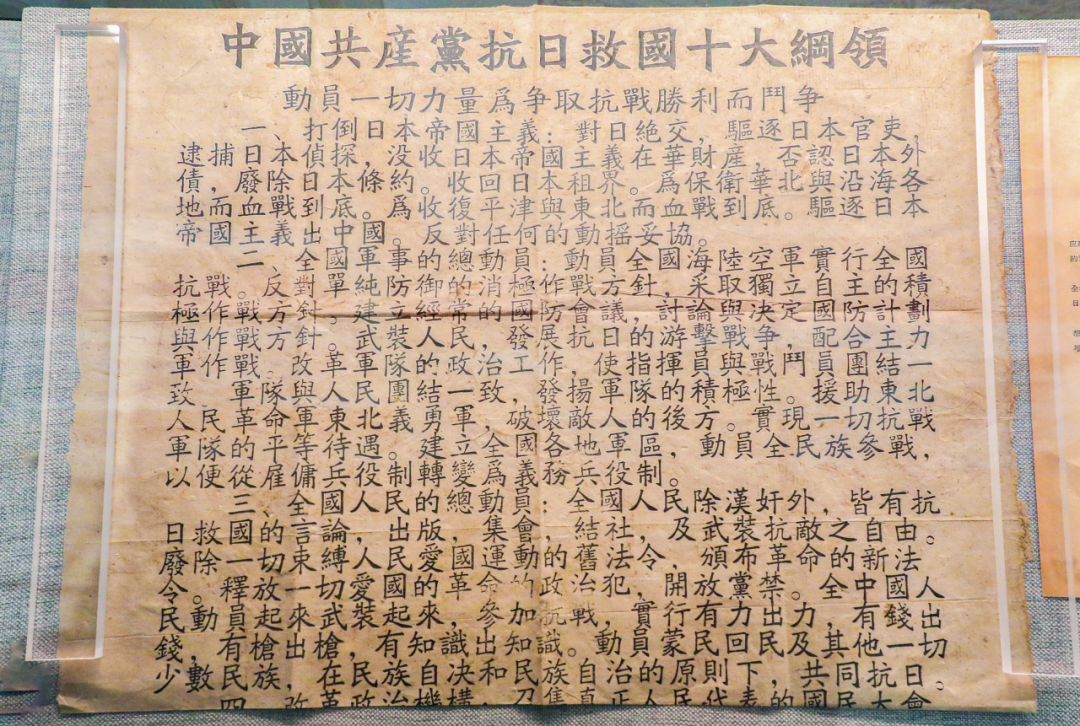 中國共産黨抗日救國十大綱領
動員一切力量爲争取抗戰勝利而鬥争
一、打倒日本帝國主義:對日絶交,驅逐日本官吏,
逮捕日本偵探,没收日本帝國主義在華財産,否認日本外
債,廢除日本條約。收回日本租界。爲保衛華北與沿海各
地而血戰到底。爲收復平津與東北而血戰到底。驅逐日本
帝國主義出中國。反對任何的動摇妥協。
二、全國軍事的總動員:動員全國海陸空軍實行全國
抗戰。反對單純防御的消極作戰方針,采取獨立自主的積
極作戰方針。建立經常的國防會議,討論與決定國防計劃
與作戰方針。武裝人民,發展抗日的游擊戰争,配合主力
軍作戰。改革軍隊的政治工作,使指揮員與戰鬥員團結一
致。軍隊與人民團結一致,發揚軍隊的積極性。援助東北
人民革命軍東北義勇軍,破壞敵人的後方。實現一切抗戰
軍隊的平等待遇。建立全國各地軍區,動員全民族參戰,
以便從雇傭兵役制轉變爲義務兵役制。
三、全國人民的總動員:全國人民除漢奸外,皆有抗
日救國的言論,出版,集會,結社,及武裝抗敵之自由。
廢除一切束縛人民愛國運動的舊法令,頒布革命的新法
令。釋放一切愛國的革命的政治犯,開放黨禁。全中國人
民動員起來武裝起來,參加抗戰,實行有力出力,有錢出
錢,有槍出槍,有知識出知識。動員蒙民回民及其他一切
少數民族,在民族自決和民族自治的原則下,共同抗日。
四、改革政治機構:召集真正人民代表的國民大會